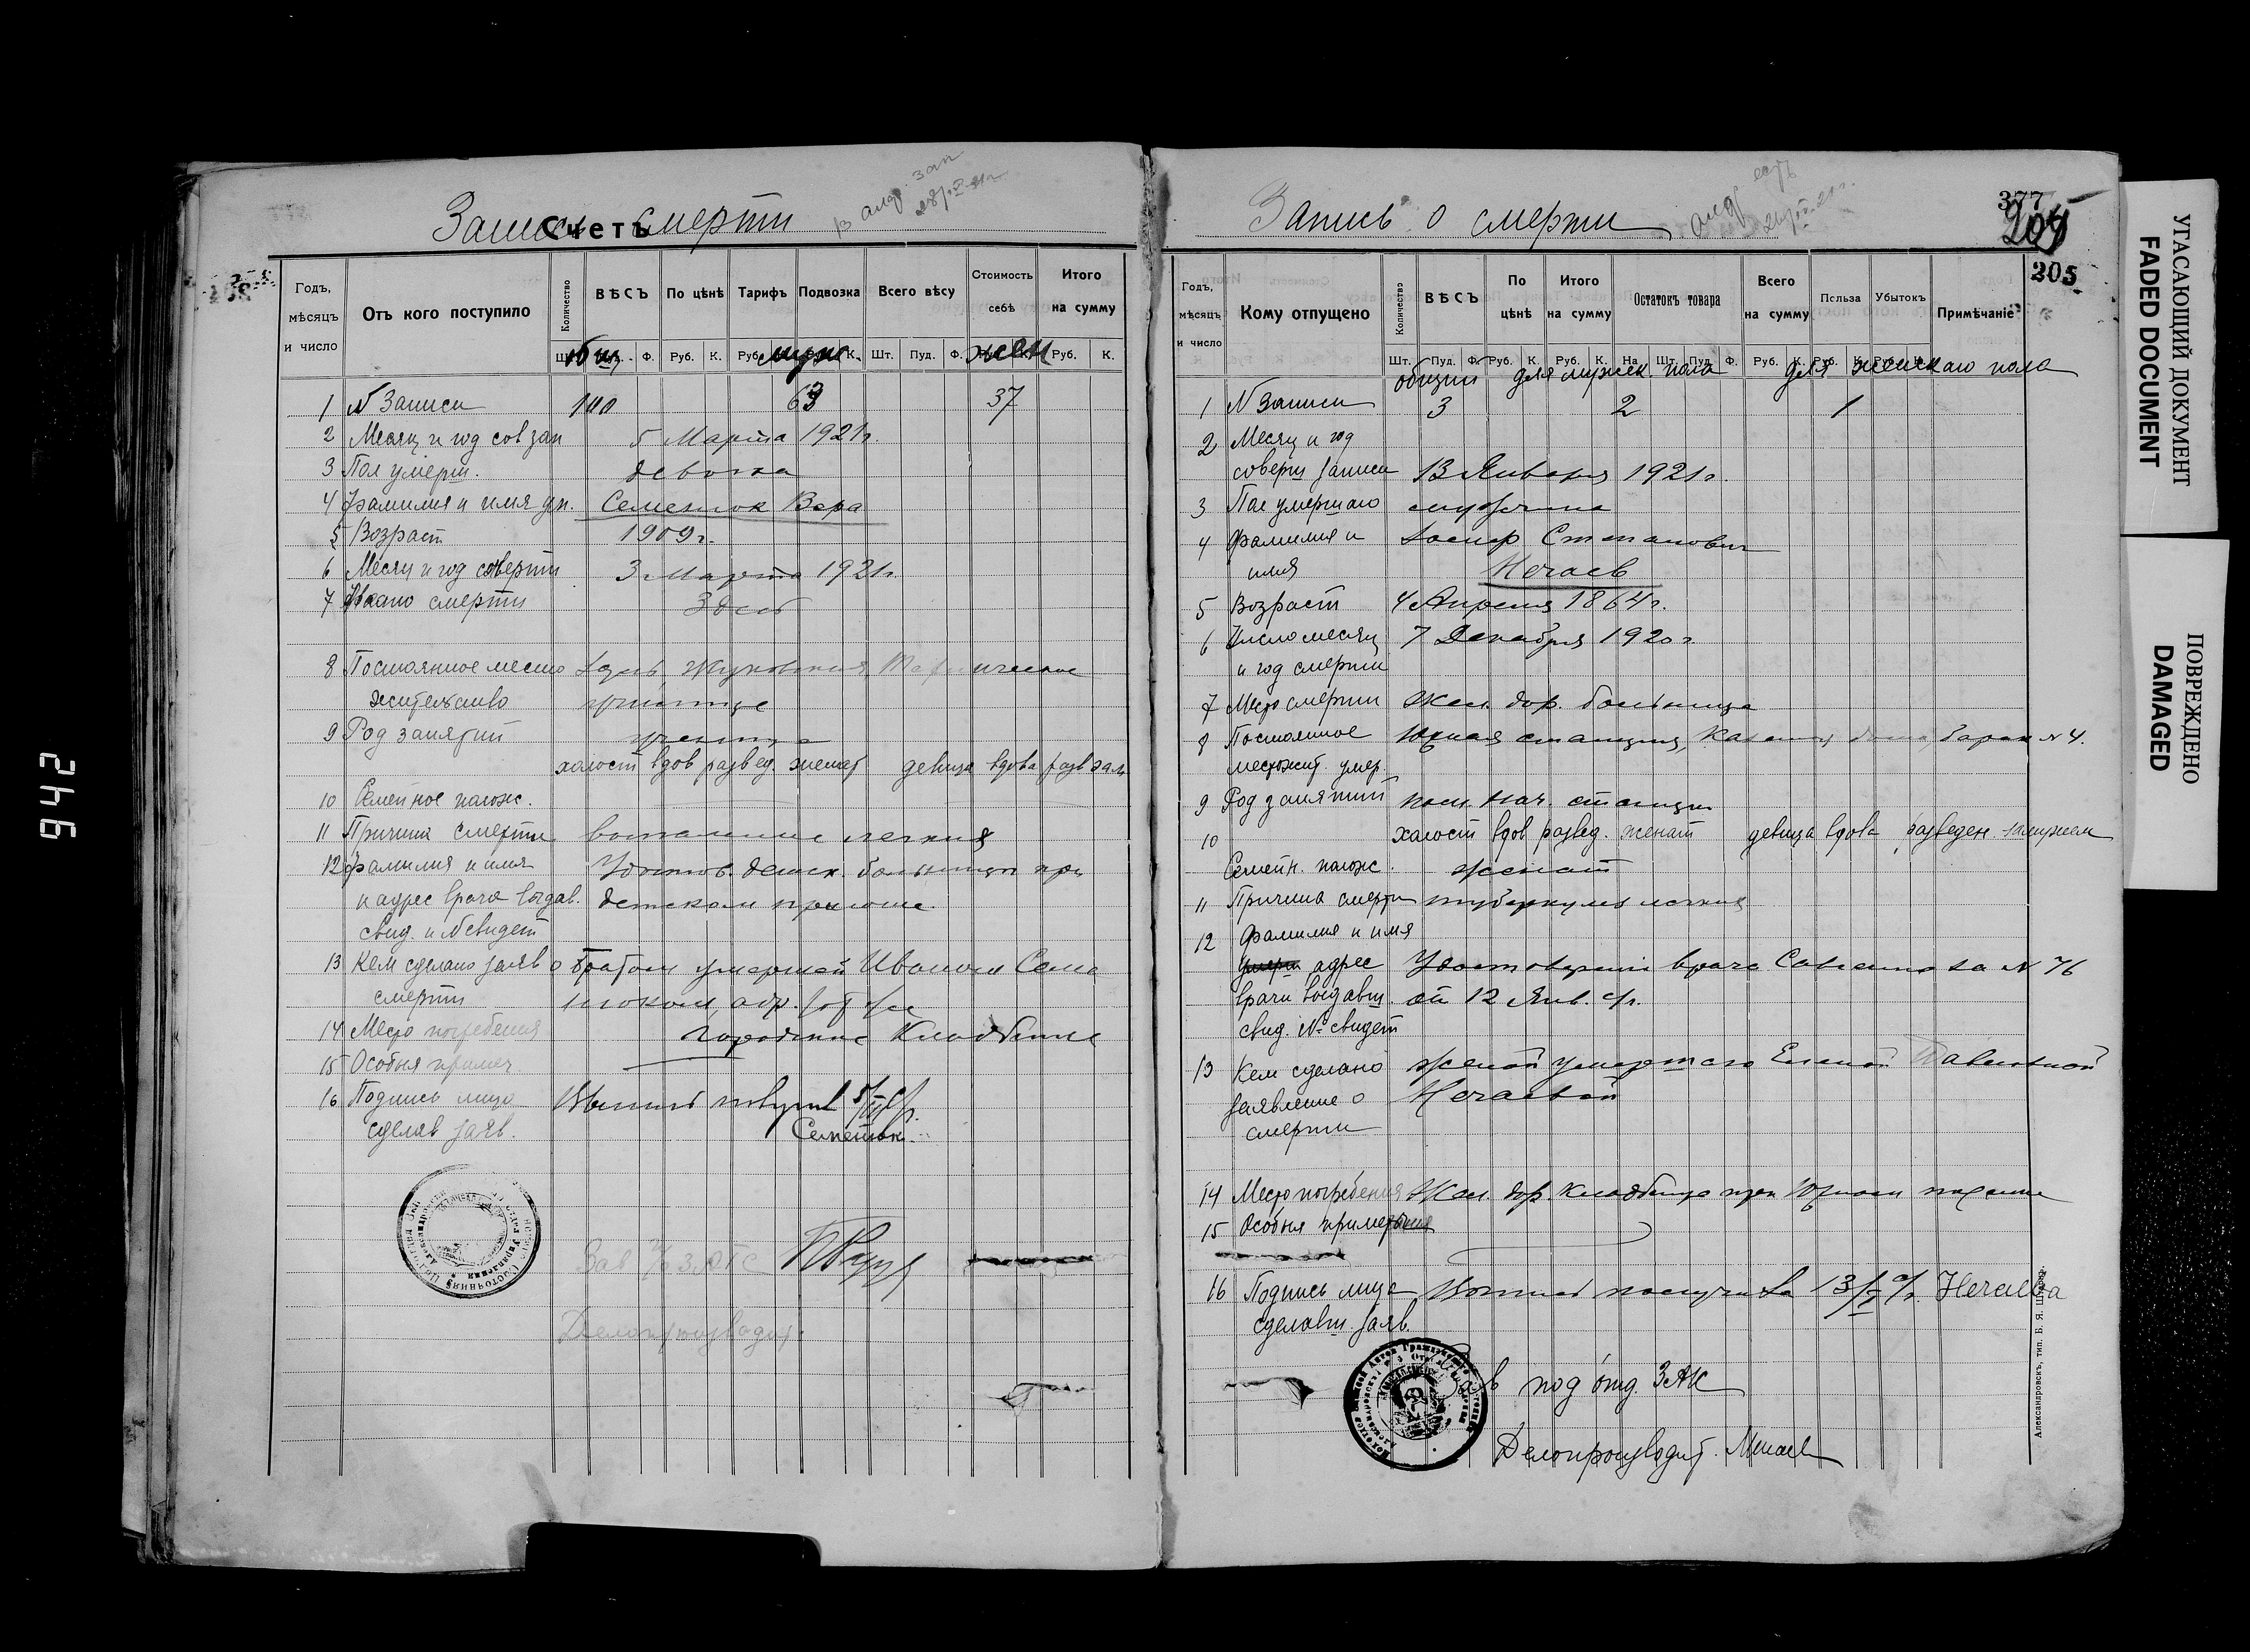 Запись смерти
Счетъ
Годъ, мѣсяцъ и число
Отъ кого поступило
Количество
ВѢСЪ
По цѣнѣ
Тарифъ
Подвозка
Всего вѣсу
Стоимость себѣ
Итого на сумму
Ф. Руб. К. Руб. К. Шт. Пуд. Ф. Руб. К.
общ. муж. жен
1 N Записи 100 63 37
2 Месяц и год сов зап 5 Марта 1921г.
3 Пол умерш. девочка
4 Фамилия и имя ум. Семенюк Вера
5 Возраст 1909г.
6 Месяц и год смерти 3 Марта 1921г.
7 смерти Здесь
8 Постоянное место
жительство
9 Род занятий ученица
холост вдов развед. женат девица вдова разв зам
10 Семейное полож.
11 Причина смерти воспаление легких
12 Фамилия и имя Удостов. детск. больницы при
и адрес врача выдав. детском приюте.
свид. и N свидет
13 Кем сделано заяв о братом умершей Иваном Семе
смерти нюком, адр.
14 Место погребения городское кладбище
15 Особыя примеч.
16 Подпись лица
сделав заяв. Семенюк
Зав
Делопроизводит.
Запись о смерти
377
204
205
Годъ, мѣсяцъ и число
Кому отпущено
Количество
ВѢСЪ
По цѣнѣ
Итого на сумму
Остатокъ товара
Всего на сумму
Польза
Убытокъ
Примѣчаніе
Шт. Пуд. Ф. Руб. К. Руб. К. На Шт. Пуд. Ф. Руб. К. Руб. К. Руб. К.
общий для мужск. пола для женскаго пола
1 N Записи 3 2 1
2 Месяц и год
соверш записи 13 Января 1921г.
3 Пол умершаго мужчина
4 Фамилия и Иосиф Степанович
имя Нечаев
5 Возраст 4 Апреля 1864г.
6 Число месяц 7 Декабря 1920г
и год смерти
7 Место смерти Жел. дор. больница
8 Постоянное Южная станция, барак N 4.
местожит. умер.
9 Род занятий пом. нач. станции
10 холост вдов развед. женат девица вдова разведен. замужем
Семейн. полож. женат
11 Причина смерти туберкулез легких
12 Фамилия и имя
адрес Удостоверение врача за N 76
врача выдавш. от 12 Янв. с/г.
свид. N свидет
13 Кем сделано женой умершего Еленой Павловной
заявление о Нечаевой
смерти
14 Место погребения Жел. дор. кладбище при Южном поселке
15 Особыя примечания
16 Подпись лица получила 13/I с/г. Нечаева
сделавш. заяв.
Зав под отд. ЗАК
Делопроизводит.
Александровскъ, тип. Б. Я.
УГАСАЮЩИЙ ДОКУМЕНТ
FADED DOCUMENT
ПОВРЕЖДЕНО
DAMAGED
246